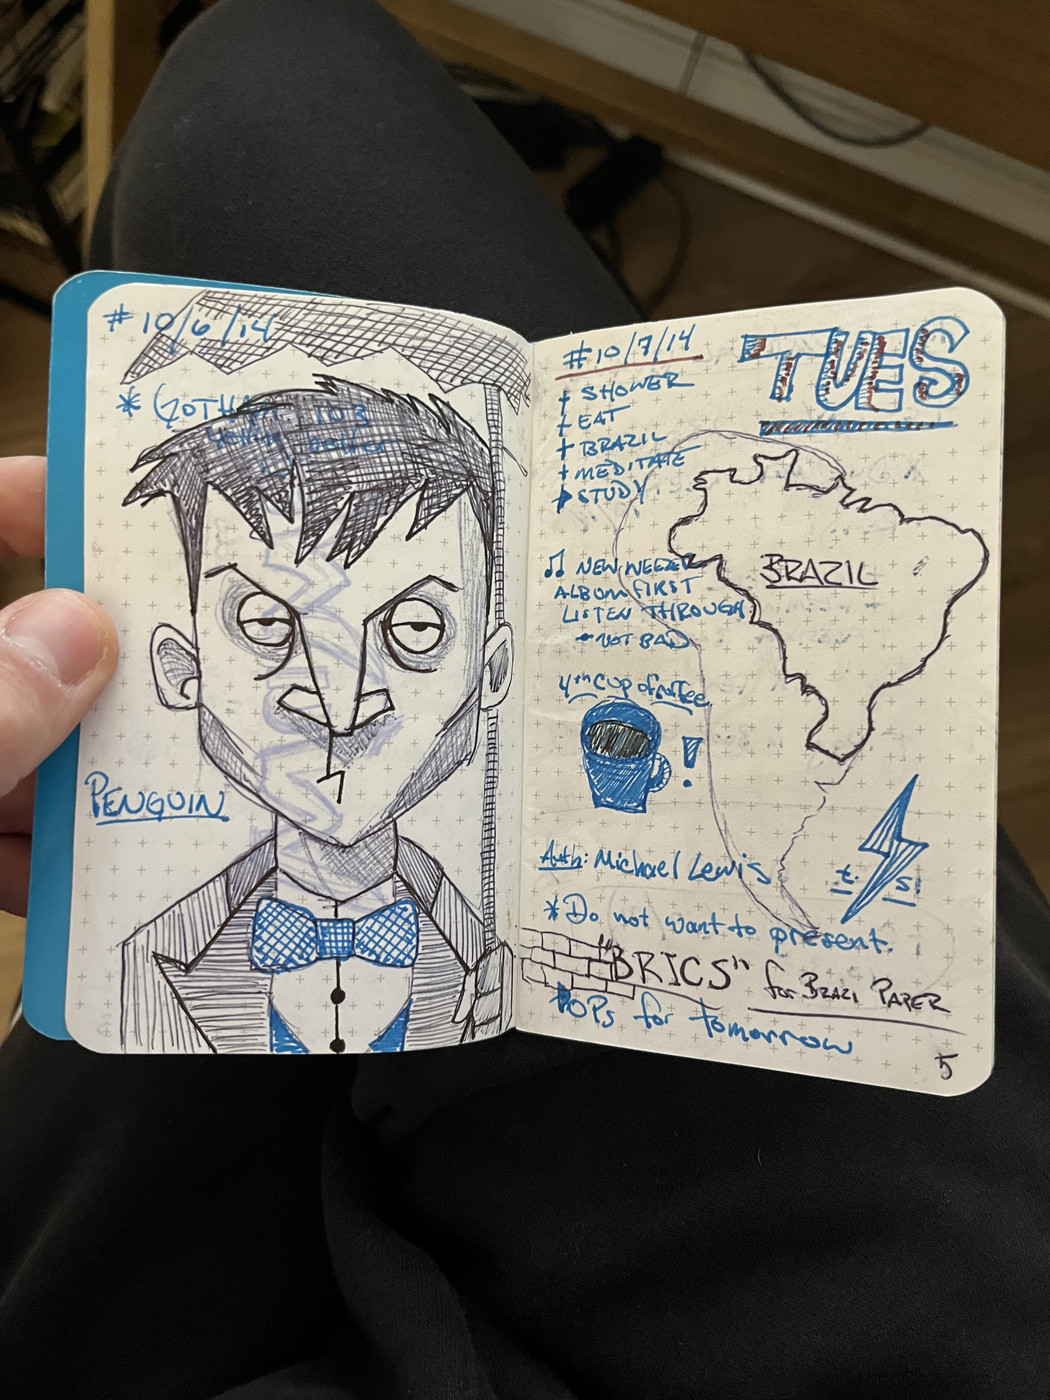 # 10/6/14
* GOTHAM 103
PENGUIN
# 10/7/14
TUES
+ SHOWER
+ EAT
+ BRAZIL
+ MEDITATE
STUDY
♫ NEW WEEZER
ALBUM FIRST
LISTEN THROUGH
- NOT BAD
BRAZIL
4th cup of coffee
!
t. s.
Auth: Michael Lewis
* Do not want to present.
"BRICS" for BRAZI PAPER
POPs for tomorrow
5